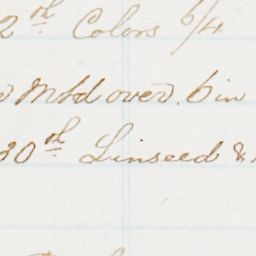 2 th Colors 6/4
Mtd over. 6 in
30 th Linseed &